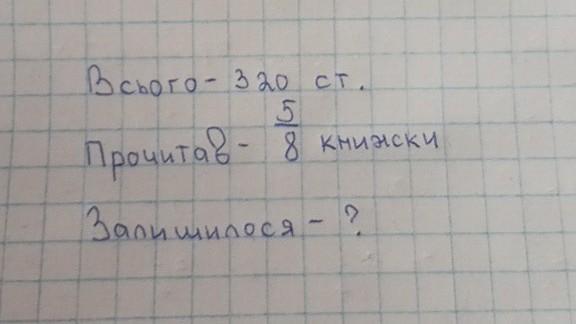 Всього - 320 ст.
Прочитав - 5/8 книжски
Залишилося - ?